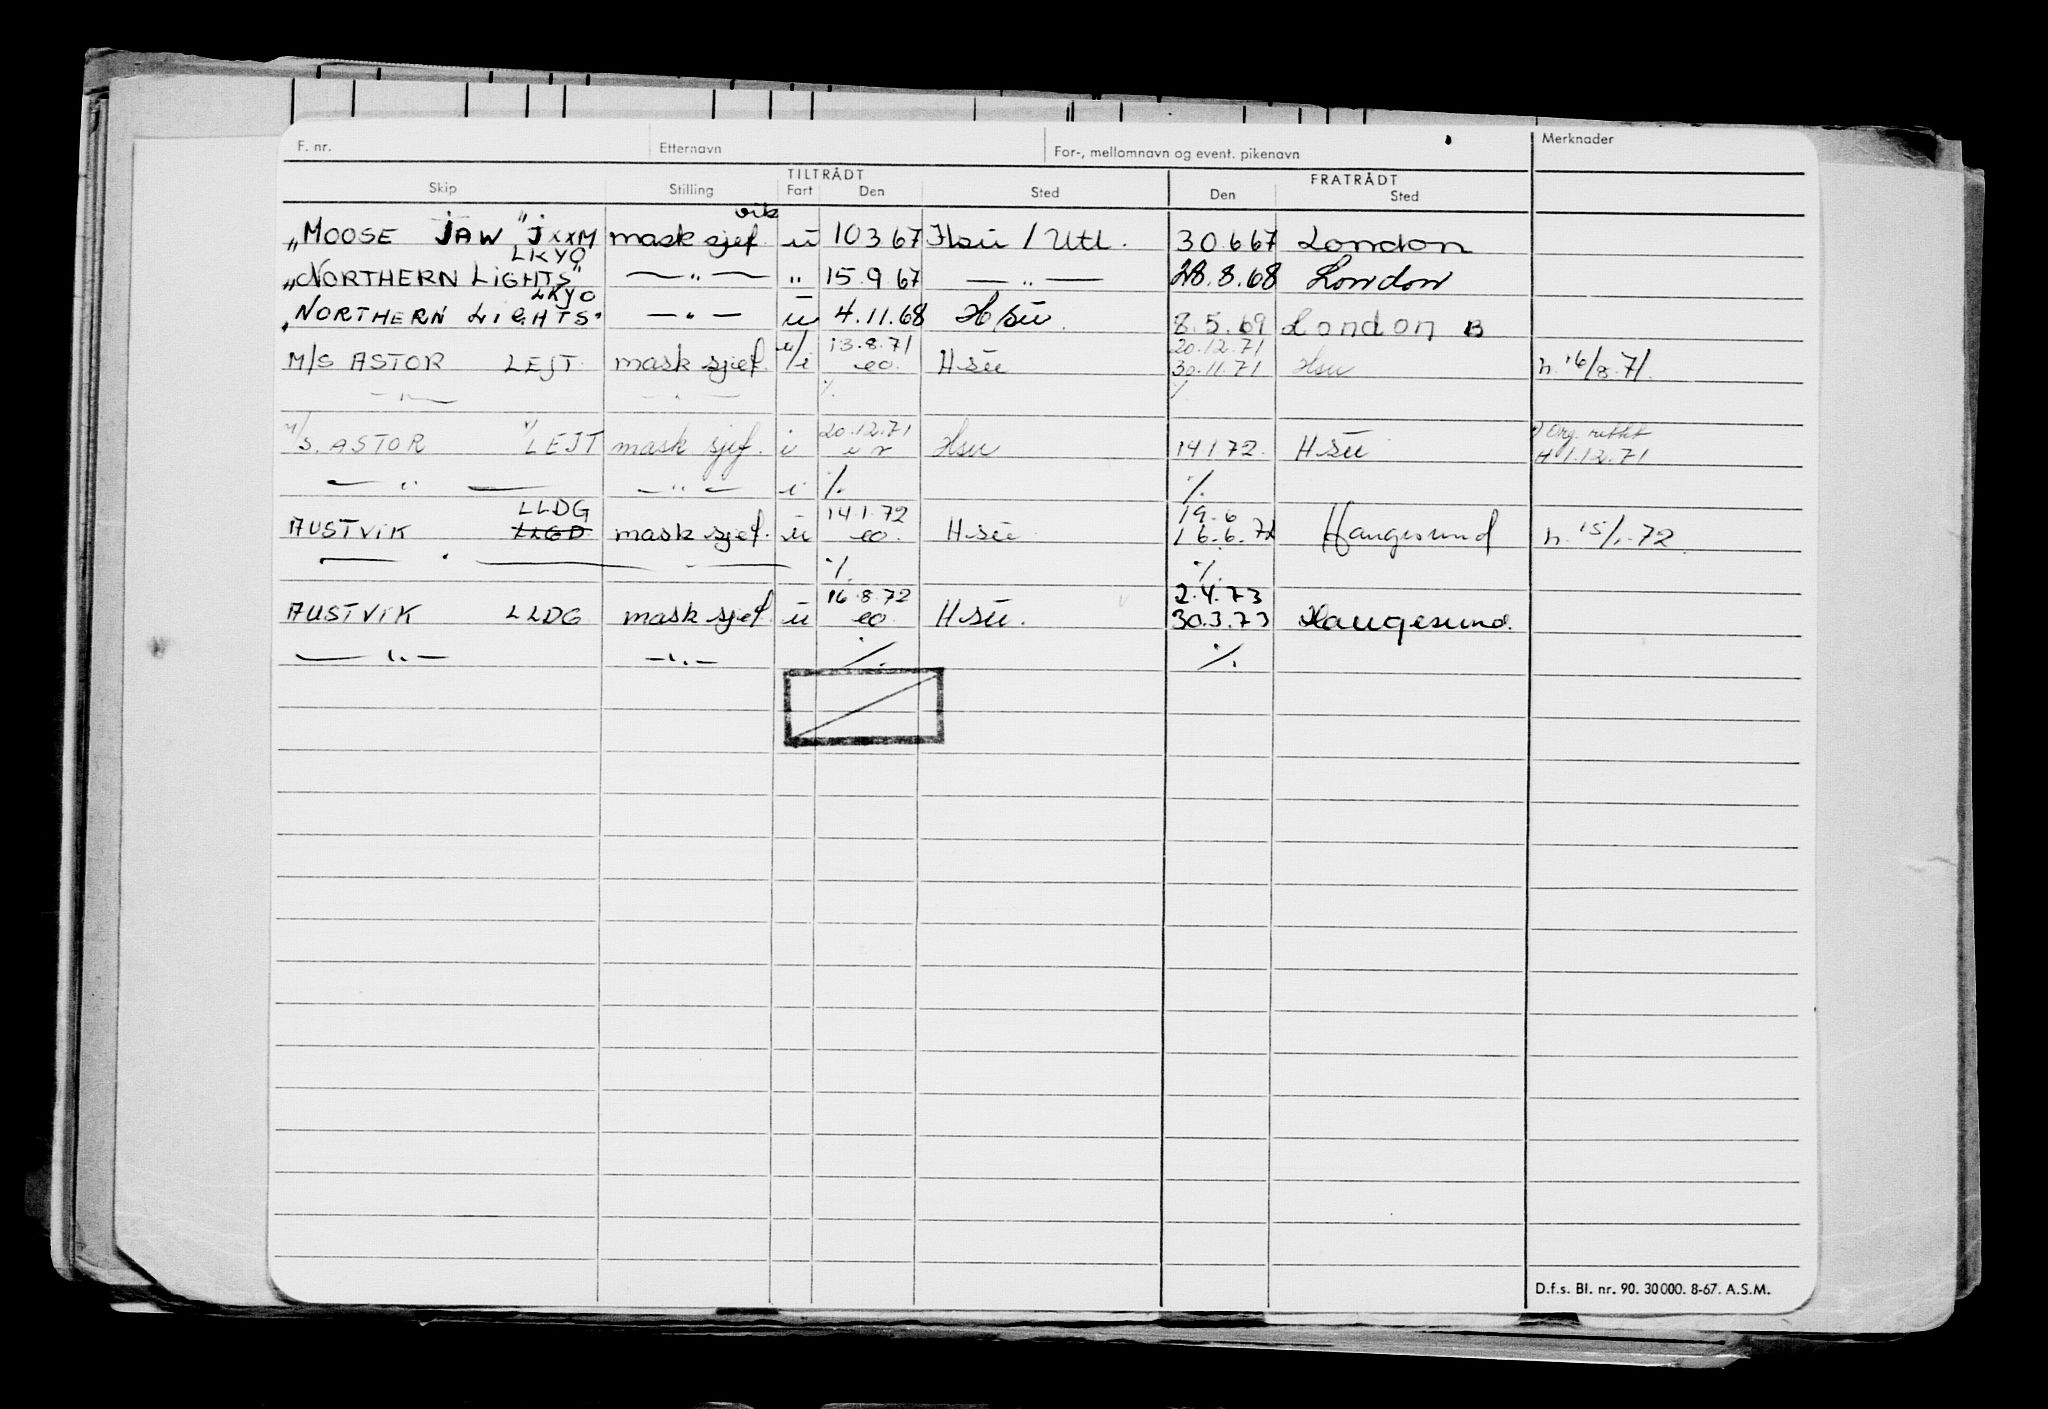 F. nr. Etternavn For-, mellomnavn og event. pikenavn Merknader
TILTRÅDT FRATRÅDT
Skip Stilling Fart Den Sted Den Sted
vik
"MOOSE JAW" JXXM mask sjef. u 10 3 67 Hsu / Utl. 30.6 67 London
LKYO
"NORTHERN LIGHTS" — " — " 15.9 67 — " — 28.8.68 London
LKYO
"NORTHERN LIGHTS" — " — u 4.11.68 Hsu 8.5.69 London B
13.8.71 20.12.71
M/S ASTOR LEJT. mask sjef. u/i eo. Hsu 30.11.71 Hsu n. 16/8.71.
— " — — " — %. %.
20.12.71
M/S. ASTOR LEJT mask sjef. i Hsu 14 1 72. Hsu H 1.12.71
— " — — " — i %. %.
LLDG 14.1.72 19.6
AUSTVIK LLGD mask sjef. u eo. Hsu 16.6.72 Haugesund n. 15/1.72.
— " — — %. %.
16.8.72 2.4.73
AUSTVIK LLDG mask sjef. u eo. Hsu. 30.3.73 Haugesund.
— " — — " — %. %.
D.f.s. Bl. nr. 90. 30000. 8-67. A.S.M.